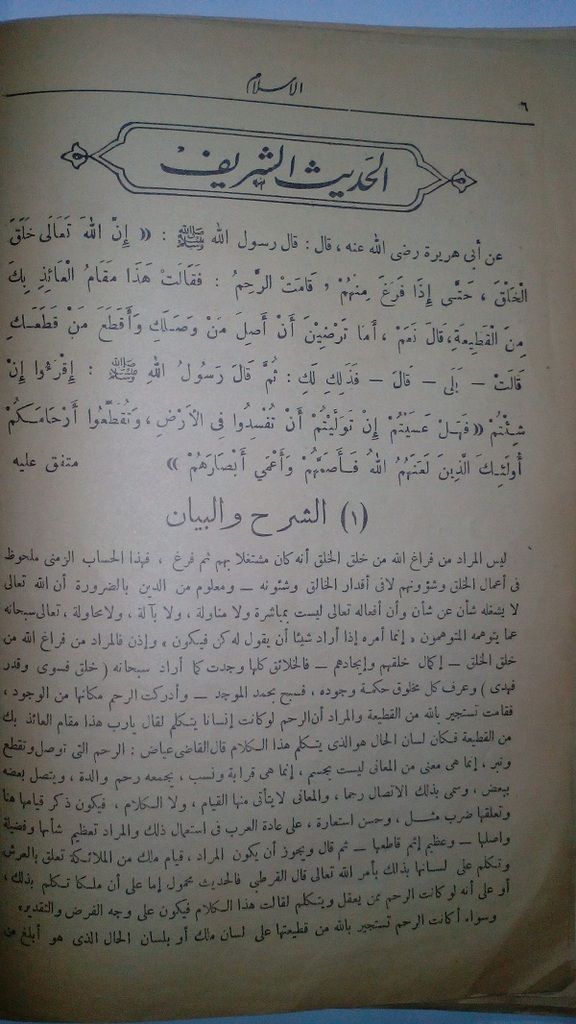 الاسلام
٦
الحديث الشريف
عن أبى هريرة رضى الله عنه ، قال : قال رسول الله ﷺ : « إِنَّ اللهَ تَعَالَى خَلَقَ
الْخَلْقَ ، حَتَّى إِذَا فَرَغَ مِنْهُمْ ، قَامَتْ الرَّحِمُ : فَقَالَتْ هَذَا مَقَامُ الْعَائِذِ بِكَ
مِنَ الْقَطِيعَةِ ، قَالَ نَعَمْ ، أَمَا تَرْضَيْنَ أَنْ أَصِلَ مَنْ وَصَلَكِ وَأَقْطَعَ مَنْ قَطَعَكِ
قَالَتْ – بَلَى – قَالَ – فَذَلِكِ لَكِ : ثُمَّ قَالَ رَسُولُ اللهِ ﷺ : إِقْرَءُوا إِنْ
شِئْتُمْ « فَهَلْ عَسَيْتُمْ إِنْ تَوَلَّيْتُمْ أَنْ تُفْسِدُوا فِى الْأَرْضِ ، وَتُقَطِّعُوا أَرْحَامَكُمْ
أُولَئِكَ الَّذِينَ لَعَنَهُمُ اللهُ فَأَصَمَّهُمْ وَأَعْمَى أَبْصَارَهُمْ » متفق عليه
(١) الشرح والبيان
ليس المراد من فراغ الله من خلق الخلق أنه كان مشتغلا بهم ثم فرغ ، فهذا الحساب الزمنى ملحوظ
فى أعمال الخلق وشؤونهم لافى أقدار الخالق وشئونه – ومعلوم من الدين بالضرورة أن الله تعالى
لا يشغله شأن عن شأن وأن أفعاله تعالى ليست بمباشرة ولا مناولة ، ولا بآلة ، ولا محاولة ، تعالى سبحانه
عما يتوهمه المتوهمون ، إنما أمره إذا أراد شيئا أن يقول له كن فيكون ، وإذن فالمراد من فراغ الله من
خلق الخلق – إكمال خلقهم وإيجادهم – فالخلائق كلها وجدت كما أراد سبحانه ( خلق فسوى وقدر
فهدى ) وعرف كل مخلوق حكمة وجوده ، فسبح بحمد الموجد – وأدركت الرحم مكانها من الوجود ،
فقامت تستجير بالله من القطيعة والمراد أن الرحم لو كانت إنسانا يتكلم لقال يارب هذا مقام العائذ بك
من القطيعة فكان لسان الحال هو الذى يتكلم هذا الكلام قال القاضى عياض : الرحم التى توصل وتقطع
وتبر ، إنما هى معنى من المعانى ليست بجسم ، إنما هى قرابة ونسب ، يجمعه رحم والدة ، ويتصل بعضه
ببعض ، وسمى بذلك الاتصال رحما ، والمعانى لايتأتى منها القيام ، ولا الكلام ، فيكون ذكر قيامها هنا
وتعلقها ضرب مثل ، وحسن استعارة ، على عادة العرب فى استعمال ذلك والمراد تعظيم شأنها وفضيلة
واصلها – وعظيم إثم قاطعها – ثم قال ويجوز أن يكون المراد ، قيام ملك من الملائكة تعلق بالعرش
وتكلم على لسانها بذلك بأمر الله تعالى قال القرطبى فالحديث محمول إما على أن ملكا تكلم بذلك ،
أو على أنه لو كانت الرحم ممن يعقل ويتكلم لقالت هذا الكلام فيكون على وجه الفرض والتقدير،
وسواء أكانت الرحم تستجير بالله من قطيعتها على لسان ملك أو بلسان الحال الذى هو أبلغ من